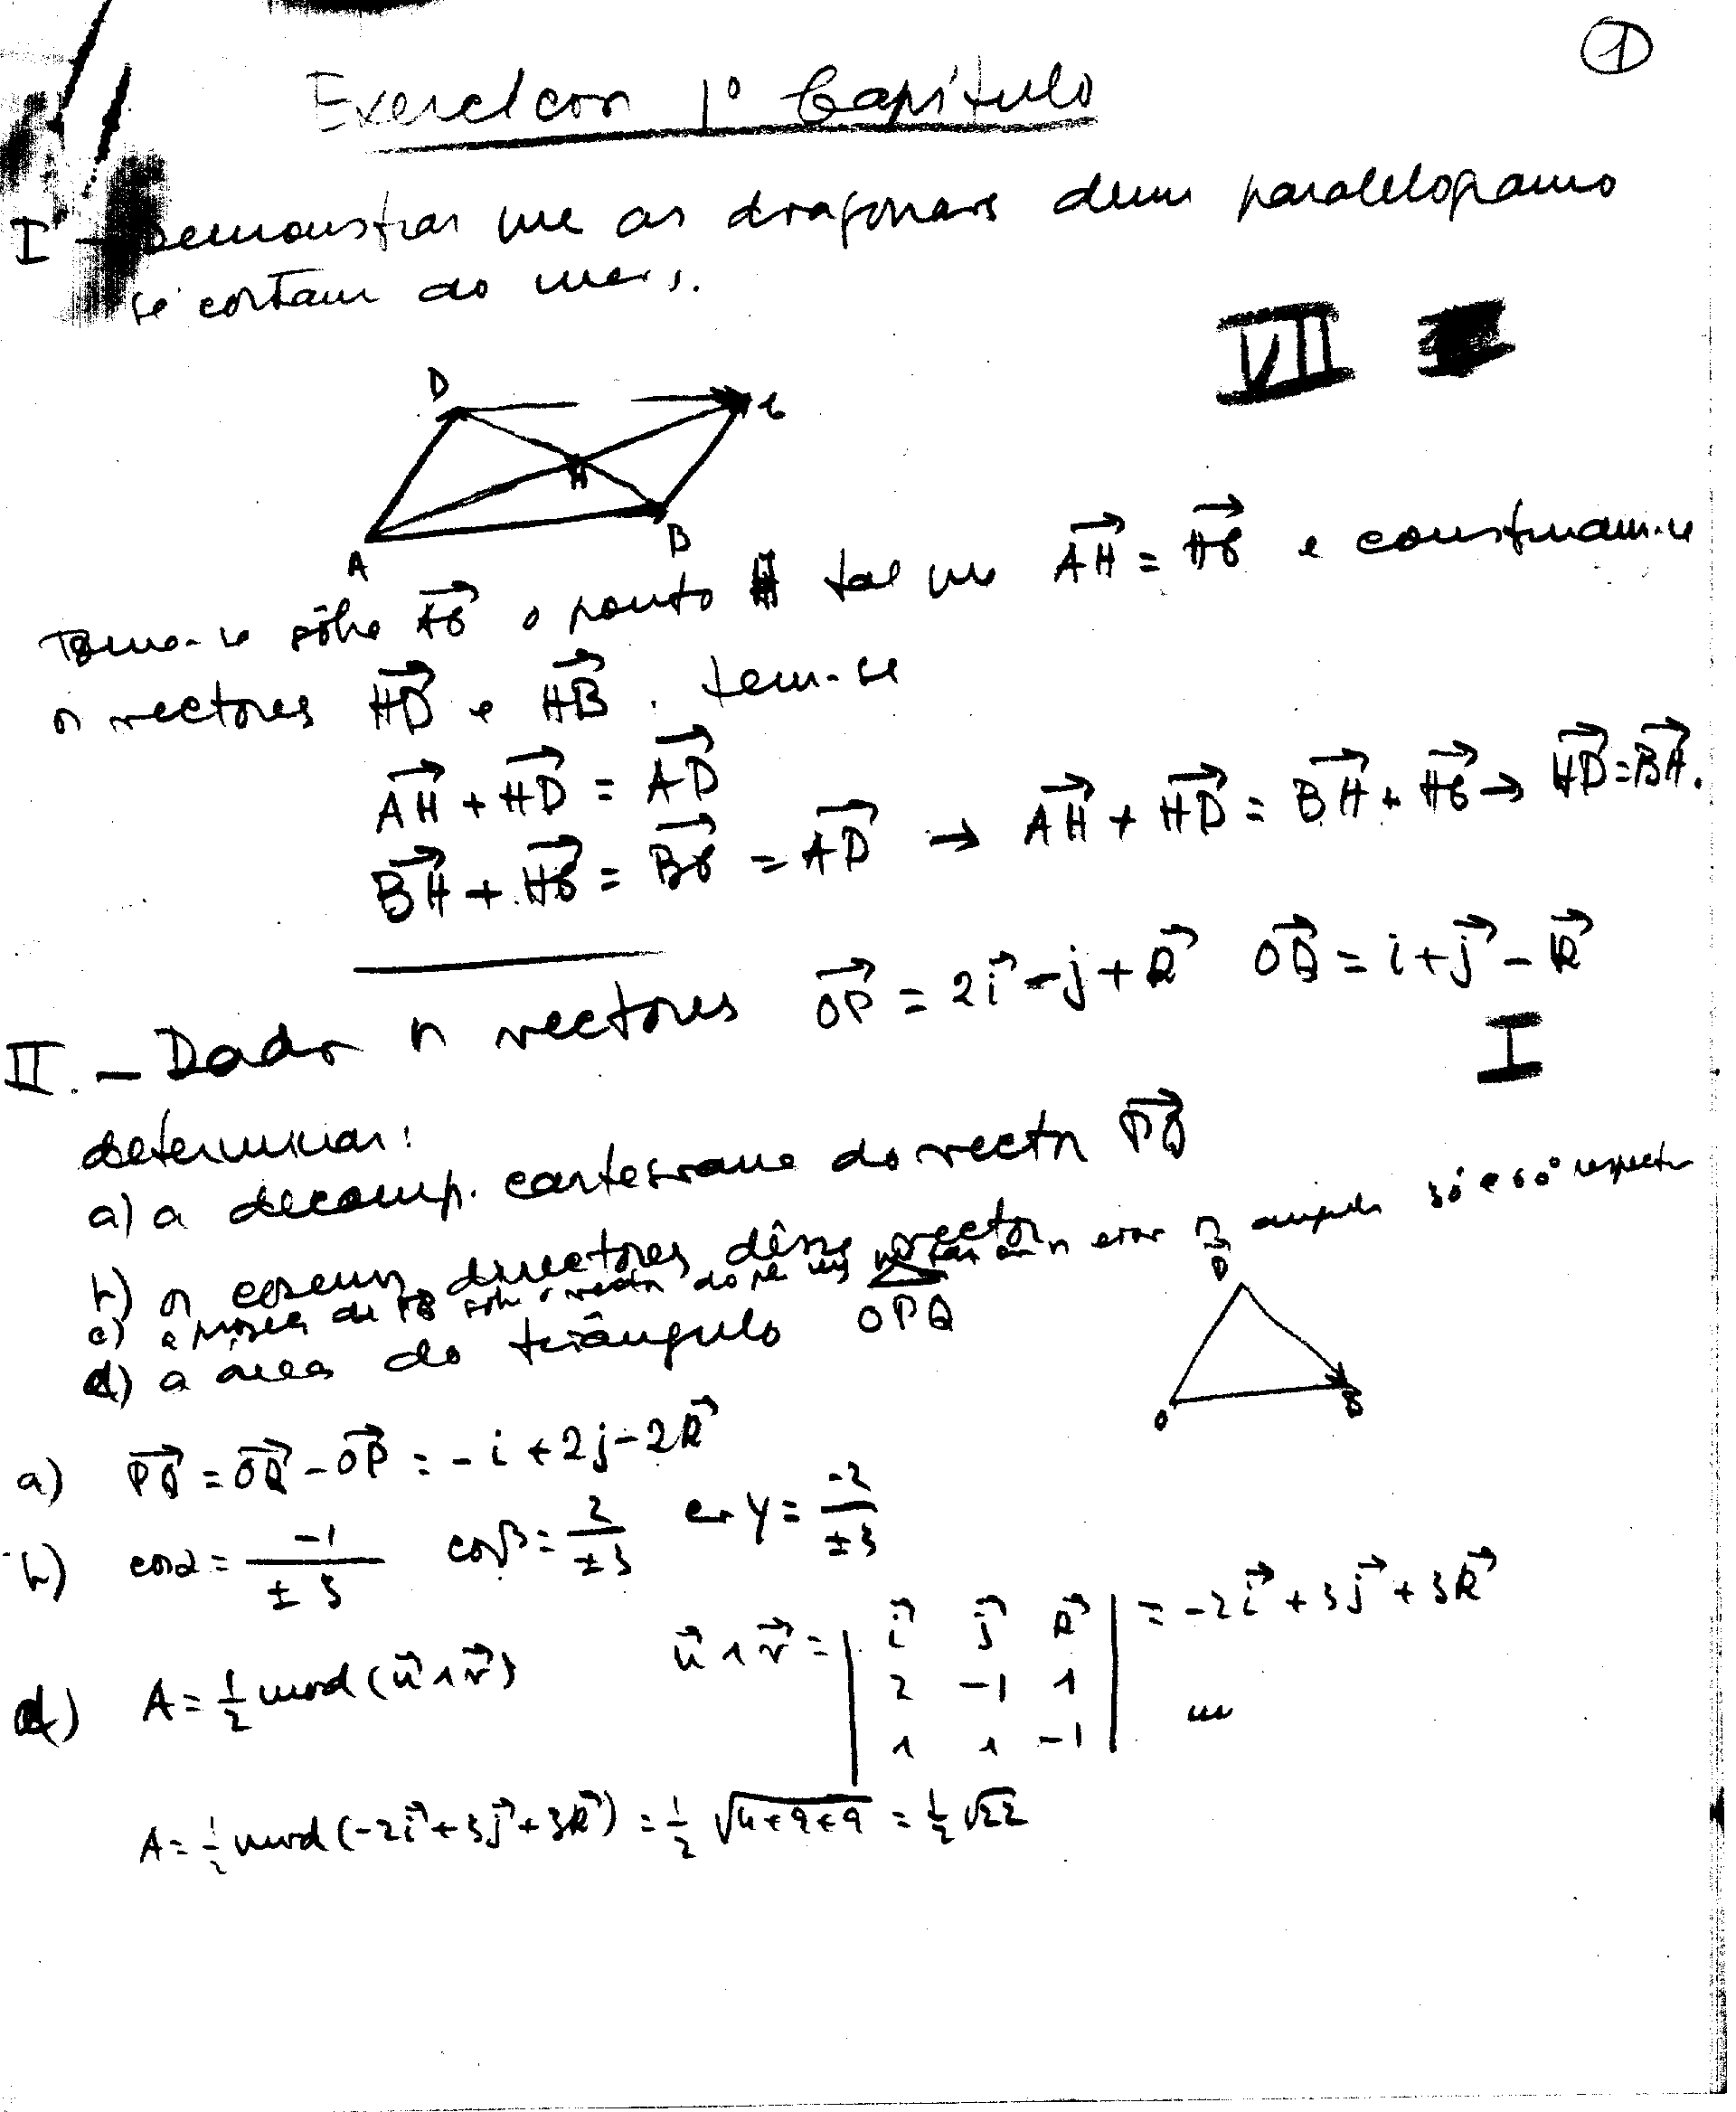 ①
Exercícios 1º Capítulo
I - Demonstrar que as diagonais dum paralelogramo
se cortam ao meio.
VII
D C
H
A B
Toma-se sôbre AC o ponto H tal que AH = HC e construam-se
os vectores HD e HB. tem-se
AH + HD = AD
BH + HC = BC = AD → AH + HD = BH + HC → HD = BH.
II. - Dados os vectores OP = 2i - j + k OQ = i + j - k
I
determinar:
a) a decomp. cartesiana do vector PQ
b) os cosenos directores dêsse vector
c) a projecç. de PQ sôbre o vector do que faz com os eixos ângulos 30 e 60° respectiv
d) a área do triângulo OPQ
P
O Q
a) PQ = OQ - OP = -i + 2j - 2k
b) cos α = -1/±3 cos β = 2/±3 cos γ = -2/±3
d) A = 1/2 mod (u ∧ v) u ∧ v = | i j k | = -2i + 3j + 3k
2 -1 1
1 1 -1
A = 1/2 mod (-2i + 3j + 3k) = 1/2 √4+9+9 = 1/2 √22